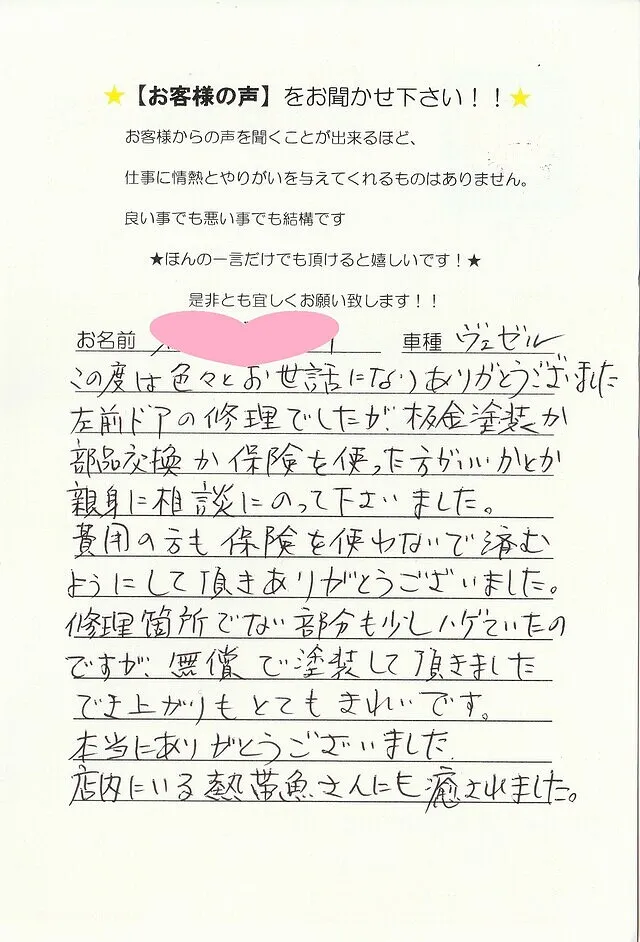 ★【お客様の声】をお聞かせ下さい！！★
お客様からの声を聞くことが出来るほど、
仕事に情熱とやりがいを与えてくれるものはありません。
良い事でも悪い事でも結構です
★ほんの一言だけでも頂けると嬉しいです！★
是非とも宜しくお願い致します！！
お名前 車種 ヴェゼル
この度は色々とお世話になりありがとうございました
左前ドアの修理でしたが、板金塗装か
部品交換か保険を使った方がいいかとか
親身に相談にのって下さいました。
費用の方も保険を使わないで済む
ようにして頂きありがとうございました。
修理箇所でない部分も少しハゲていたの
ですが、無償で塗装して頂きました
でき上がりもとてもきれいです。
本当にありがとうございました
店内にいる熱帯魚さんにも癒されました。